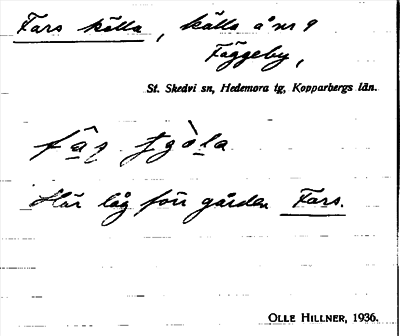 Fars källa, källa å nr 9
Fäggeby,
St. Skedvi sn, Hedemora tg, Kopparbergs län.
Här låg förr gården Fars.
OLLE HILLNER, 1936.